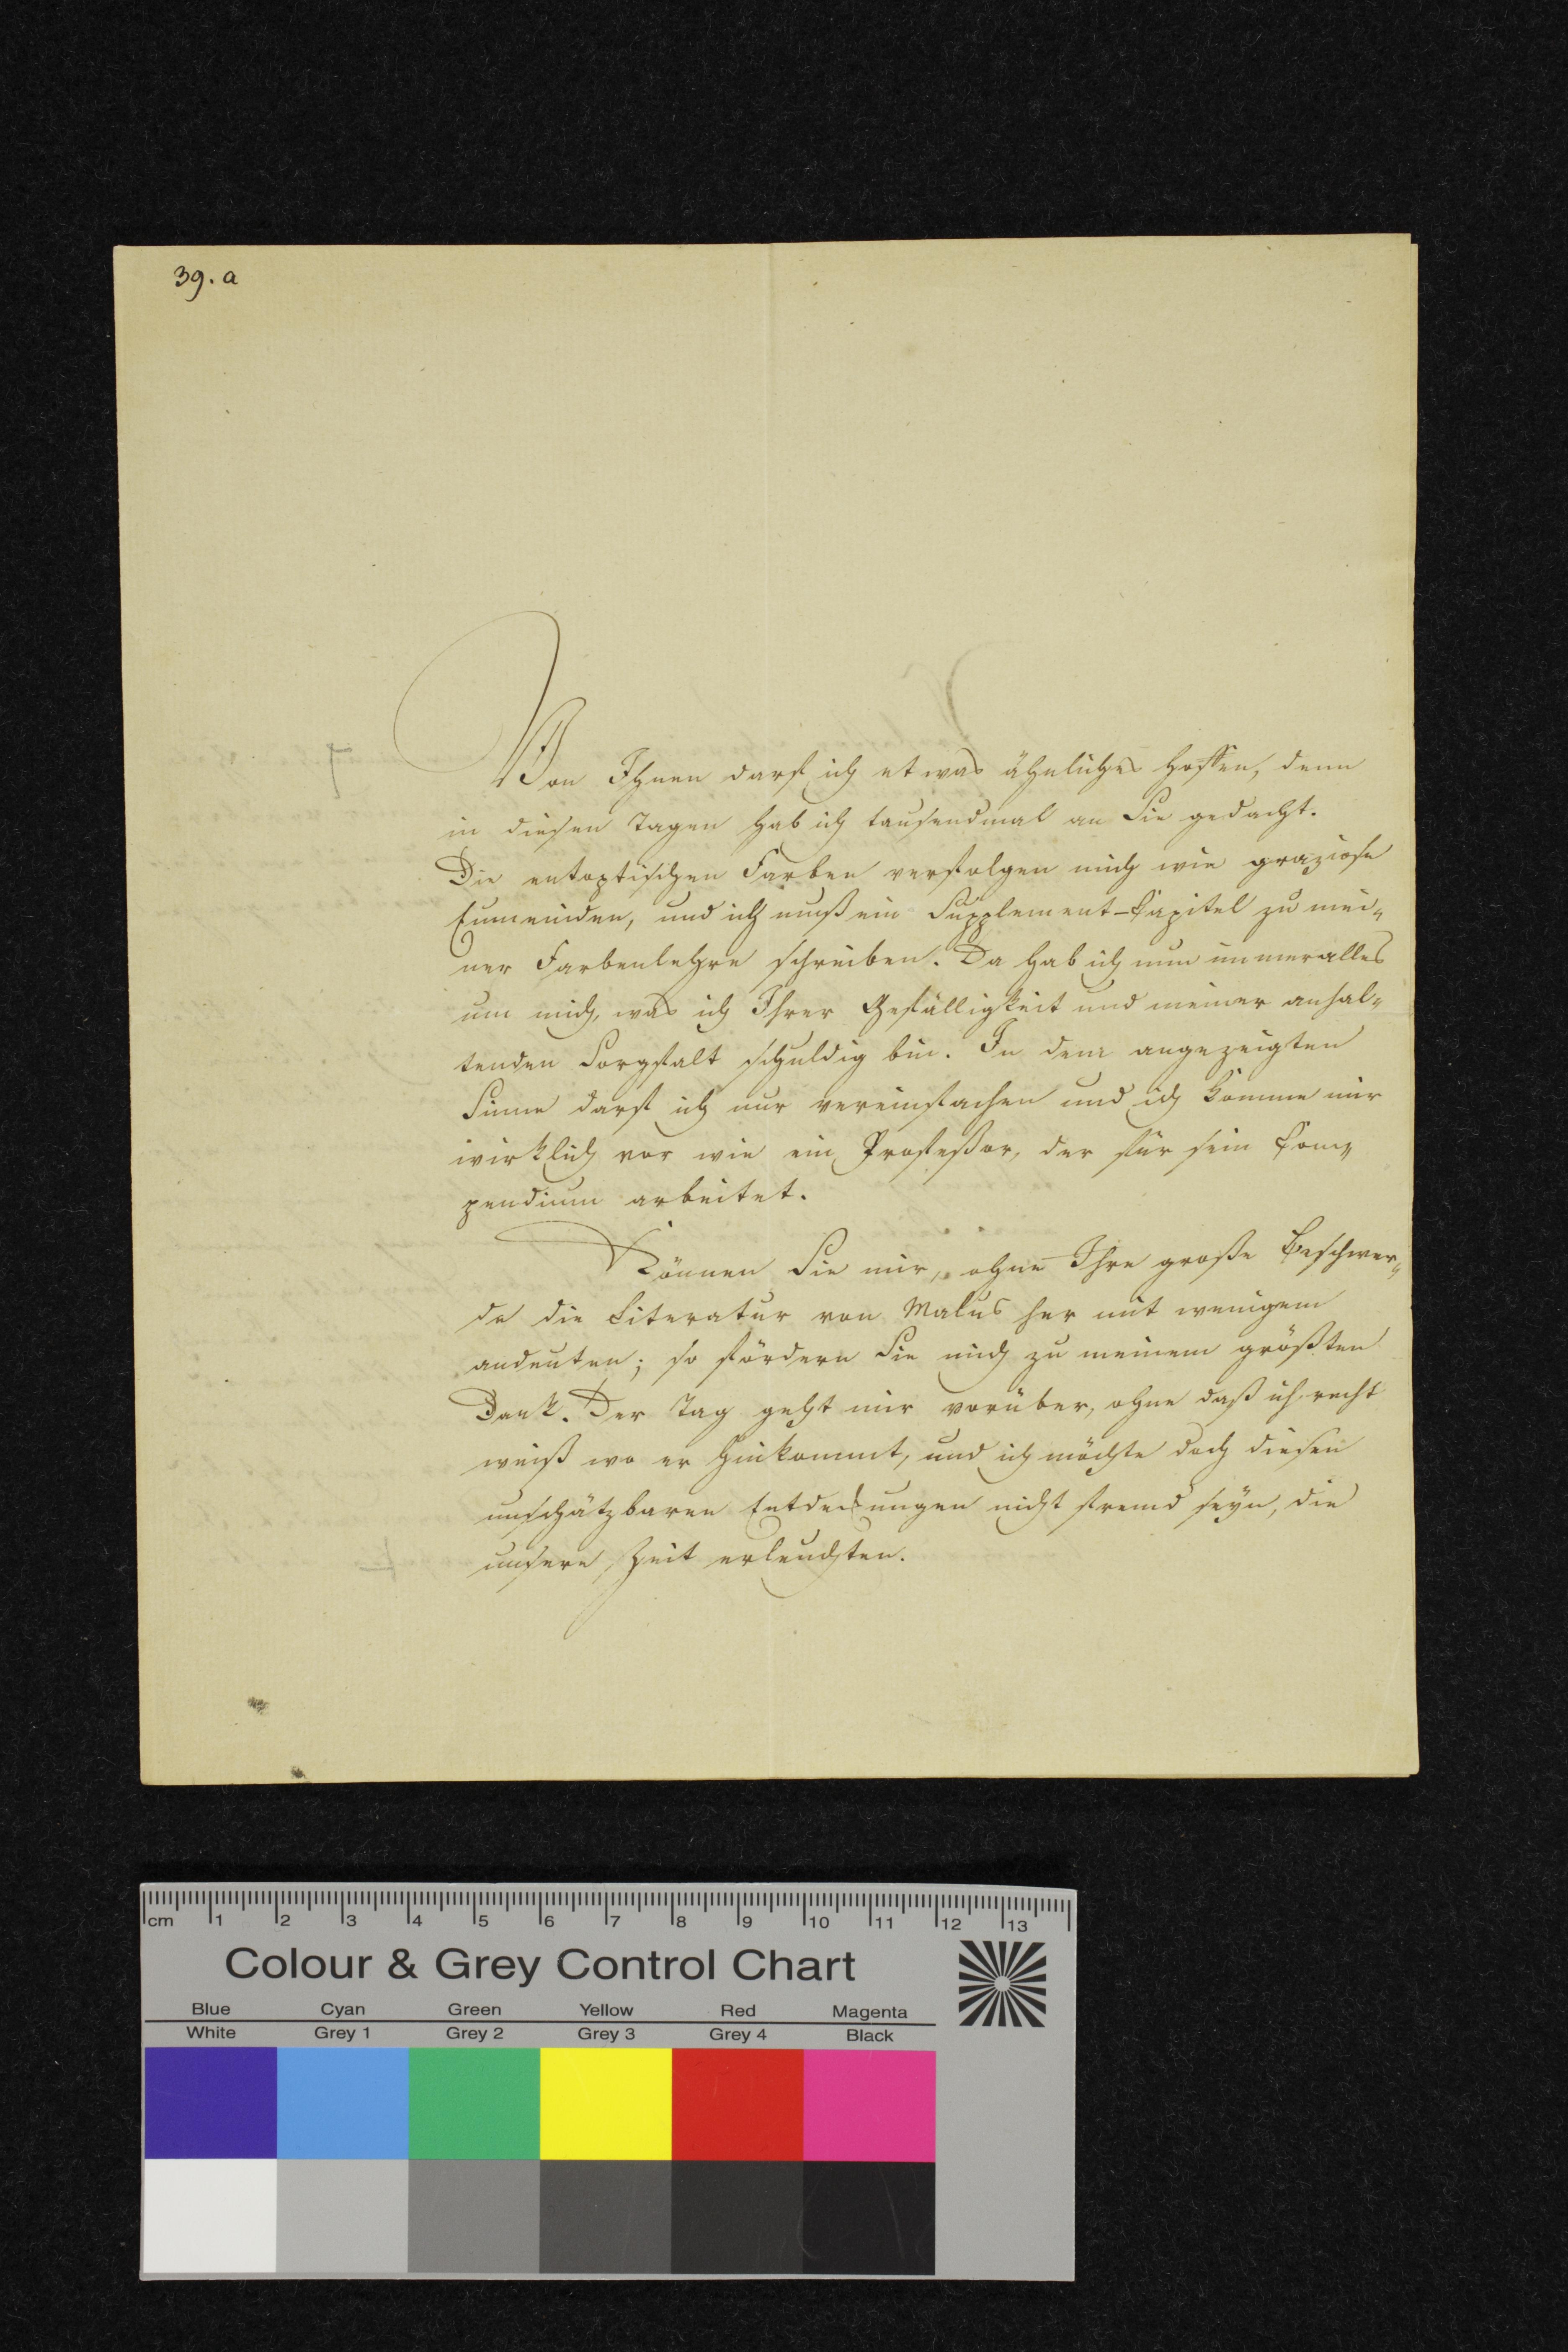 39. a
Von Ihnen darf ich etwas ähnliches hoffen, denn
in diesen Tagen hab ich tausendmal an Sie gedacht.
Die entoptischen Farben verfolgen mich wie graziose
Eumeniden, und ich muß ein Supplement-Capitel zu mei„
ner Farbenlehre schreiben. Da hab ich nun immer alles
um mich, was ich Ihrer Gefälligkeit und meiner anhal„
tenden Sorgfalt schuldig bin. In dem angezeigten
Sinne darf ich nur vereinfachen und ich komme mir
wirklich vor wie ein Profeßor, der für sein Com„
pendium arbeitet.
Können Sie mir, ohne Ihre große Beschwer„
de die Literatur von Malus her mit wenigem
andeuten; so fördern Sie mich zu meinem größten
Dank. Der Tag geht mir vorüber, ohne daß ich recht
weiß wo er hinkommt, und ich möchte doch diesen
unschätzbaren Entdeckungen nicht fremd seyn, die
unsere Zeit erleuchten.
cm 1 2 3 4 5 6 7 8 9 10 11 12 13
Colour & Grey Control Chart
Blue Cyan Green Yellow Red Magenta
White Grey 1 Grey 2 Grey 3 Grey 4 Black